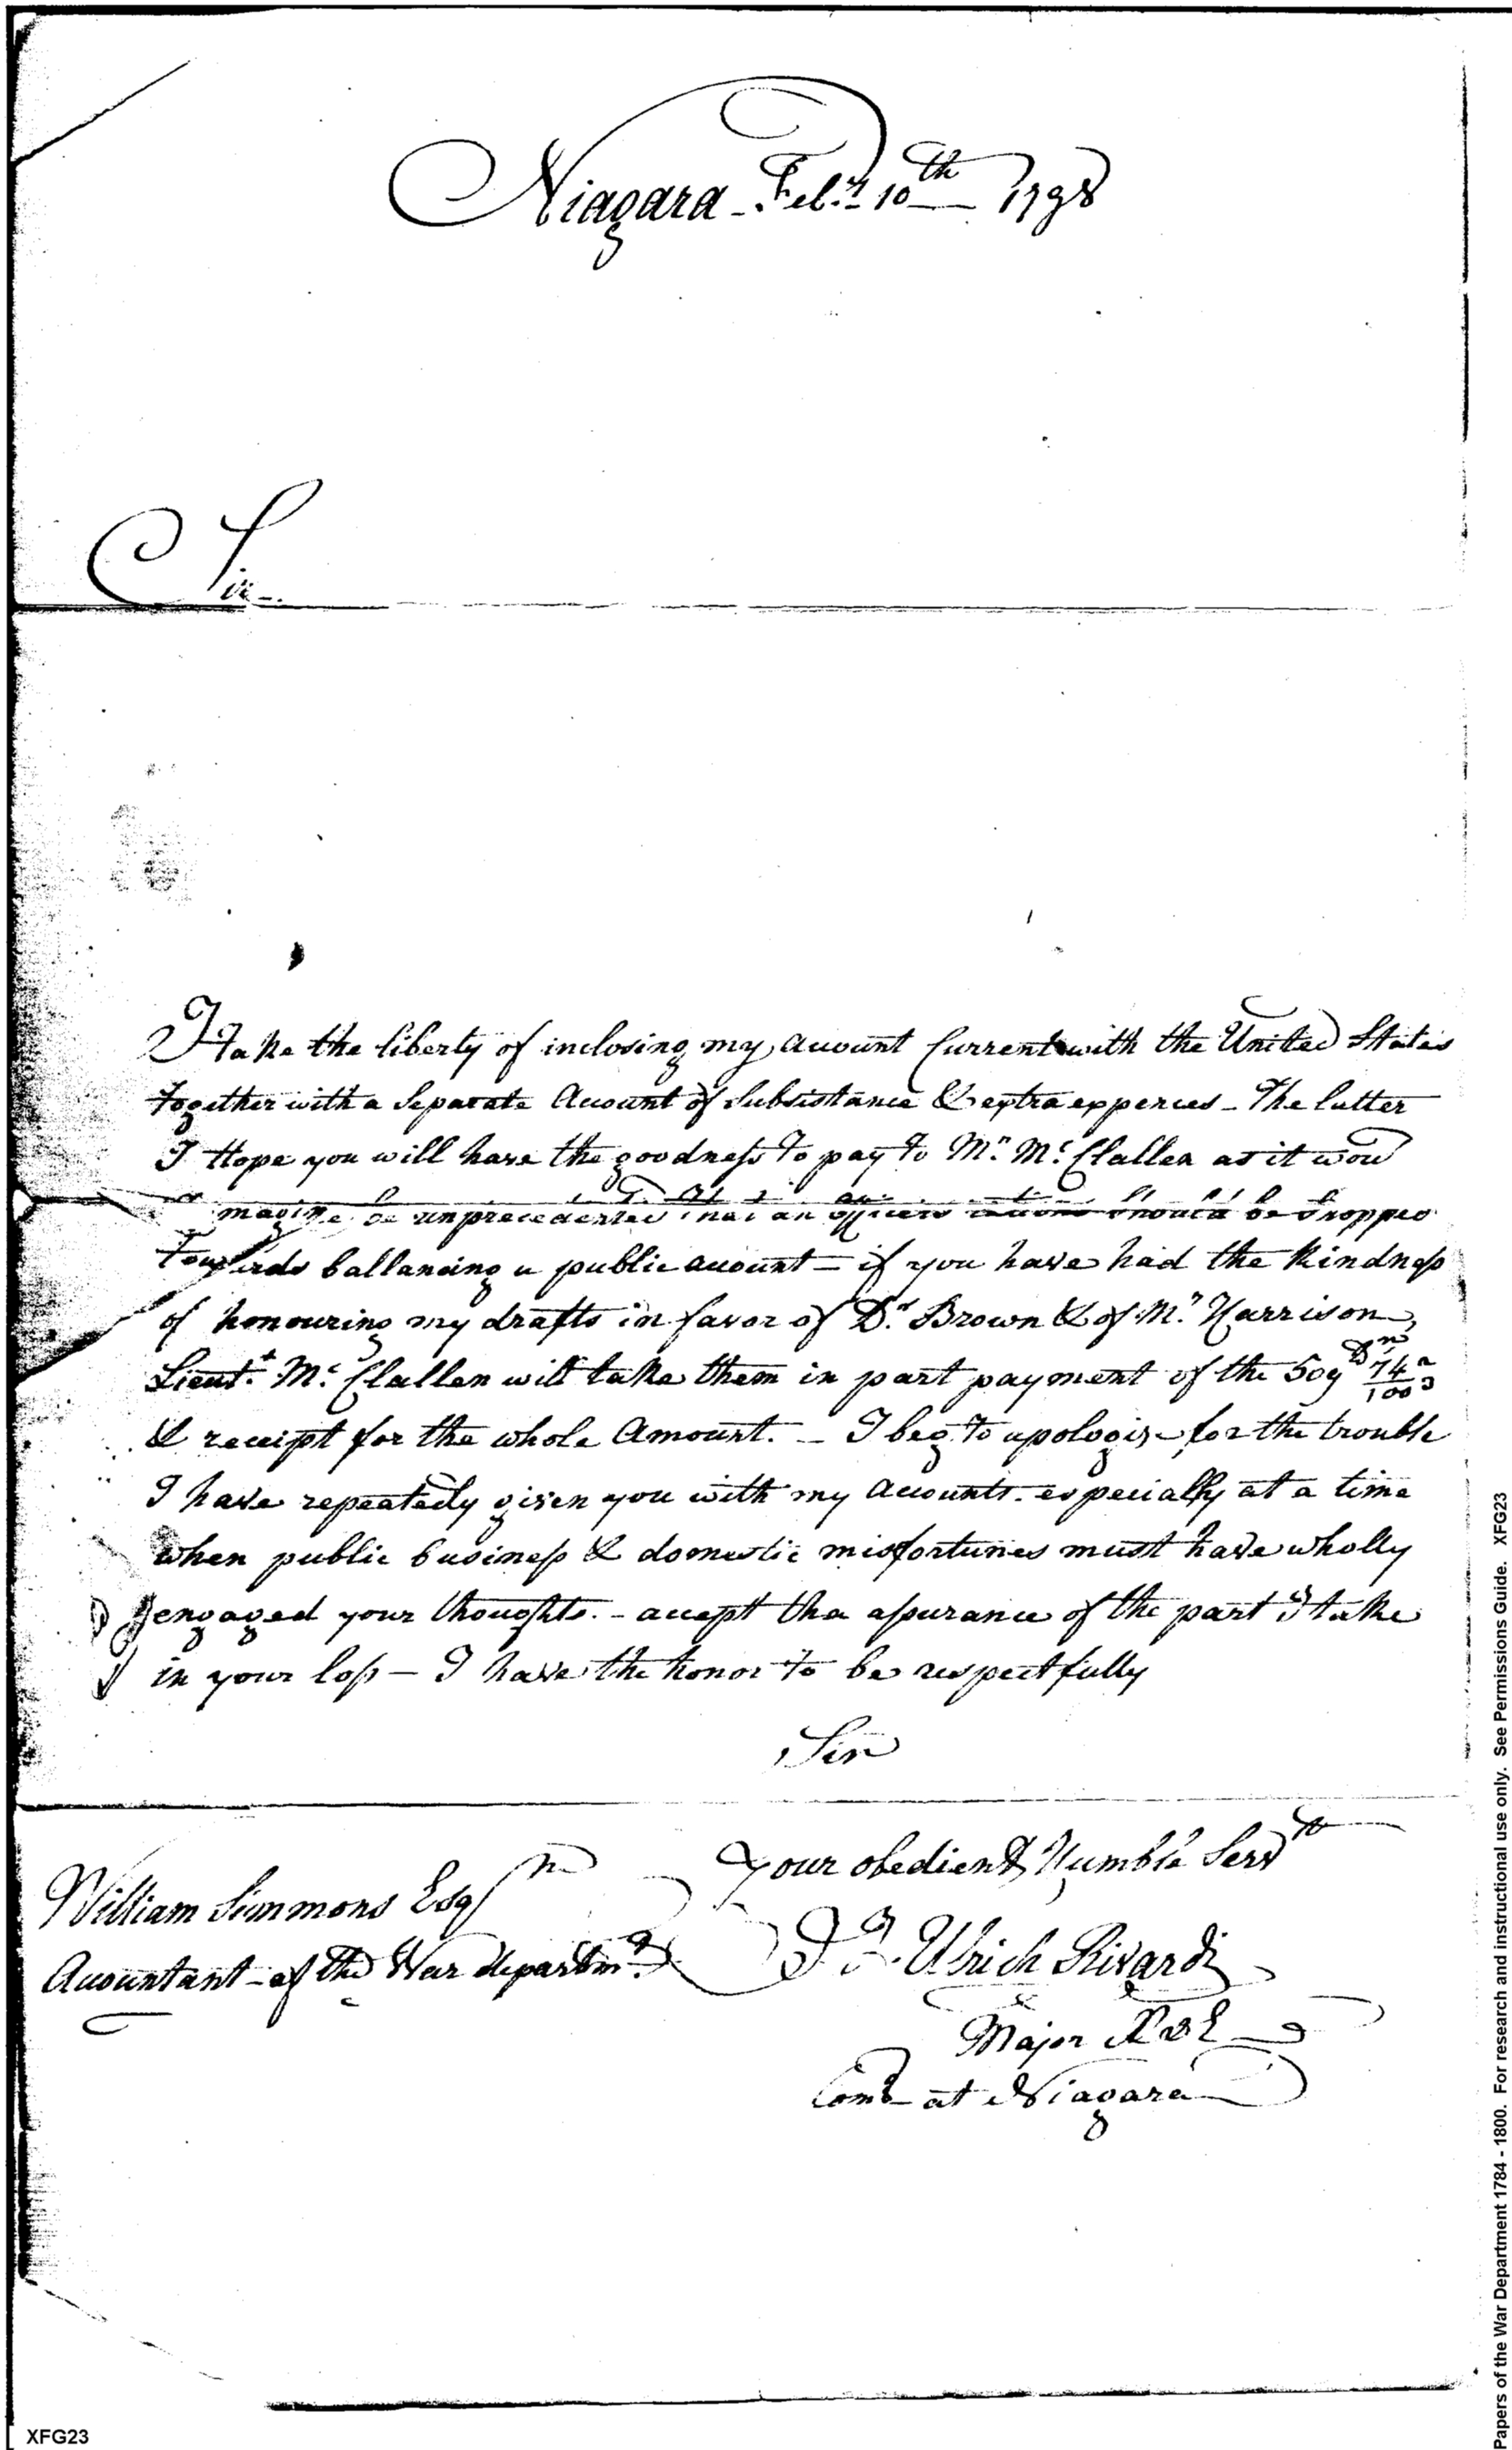 Niagara - Feby. 10th 1798
Sir -
I take the liberty of inclosing my account Current with the United States
together with a Separate Account of Subsistance & extra expences - The latter
I Hope you will have the goodness to pay to Mr. Mc. Clallen as it wou'd
magine be unprecedented that an officers rations should be stopped
Towards ballancing a public account - if you have had the kindness
of honouring my drafts in favor of Dr. Brown & of Mr. Harrison,
Lieut. Mc. Clallen will take them in part payment of the 509 Drs 74/100
& receipt for the whole Amount. - I beg to apologise for the trouble
I have repeatedly given you with my accounts - especially at a time
when public business & domestic misfortunes must have wholly
engaged your thoughts. - accept the assurance of the part I take
in your loss - I have the honor to be respectfully
Sir
your obedient Humble Servt
William Simmons Esqr
Accountant - of the War departmt.
J. J. Ulrich Rivardi
Major A & E
Comdt at Niagara
Papers of the War Department 1784 - 1800. For research and instructional use only. See Permissions Guide. XFG23
XFG23